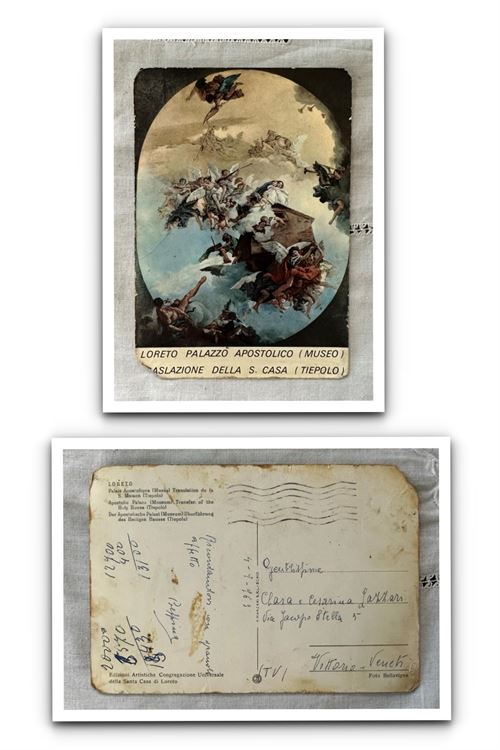 LORETO PALAZZO APOSTOLICO (MUSEO)
RASLAZIONE DELLA S. CASA (TIEPOLO)
LORETO
Palais Apostolique (Musée) Translation de la
S. Maison (Tiepolo)
Apostolic Palace (Museum) Transfer of the
Holy House (Tiepolo)
Der Apostolische Palast (Museum) Überführung
des Heiligen Hauses (Tiepolo)
Ricordandovi con grande
affetto
Peppina
4-7-963
Gentilissime
Clara e Cesarina Lazzari
Via Jacopo Stella 5
Vittorio Veneto
(TV)
Edizioni Artistiche Congregazione Universale
della Santa Casa di Loreto
Foto Bellavigna